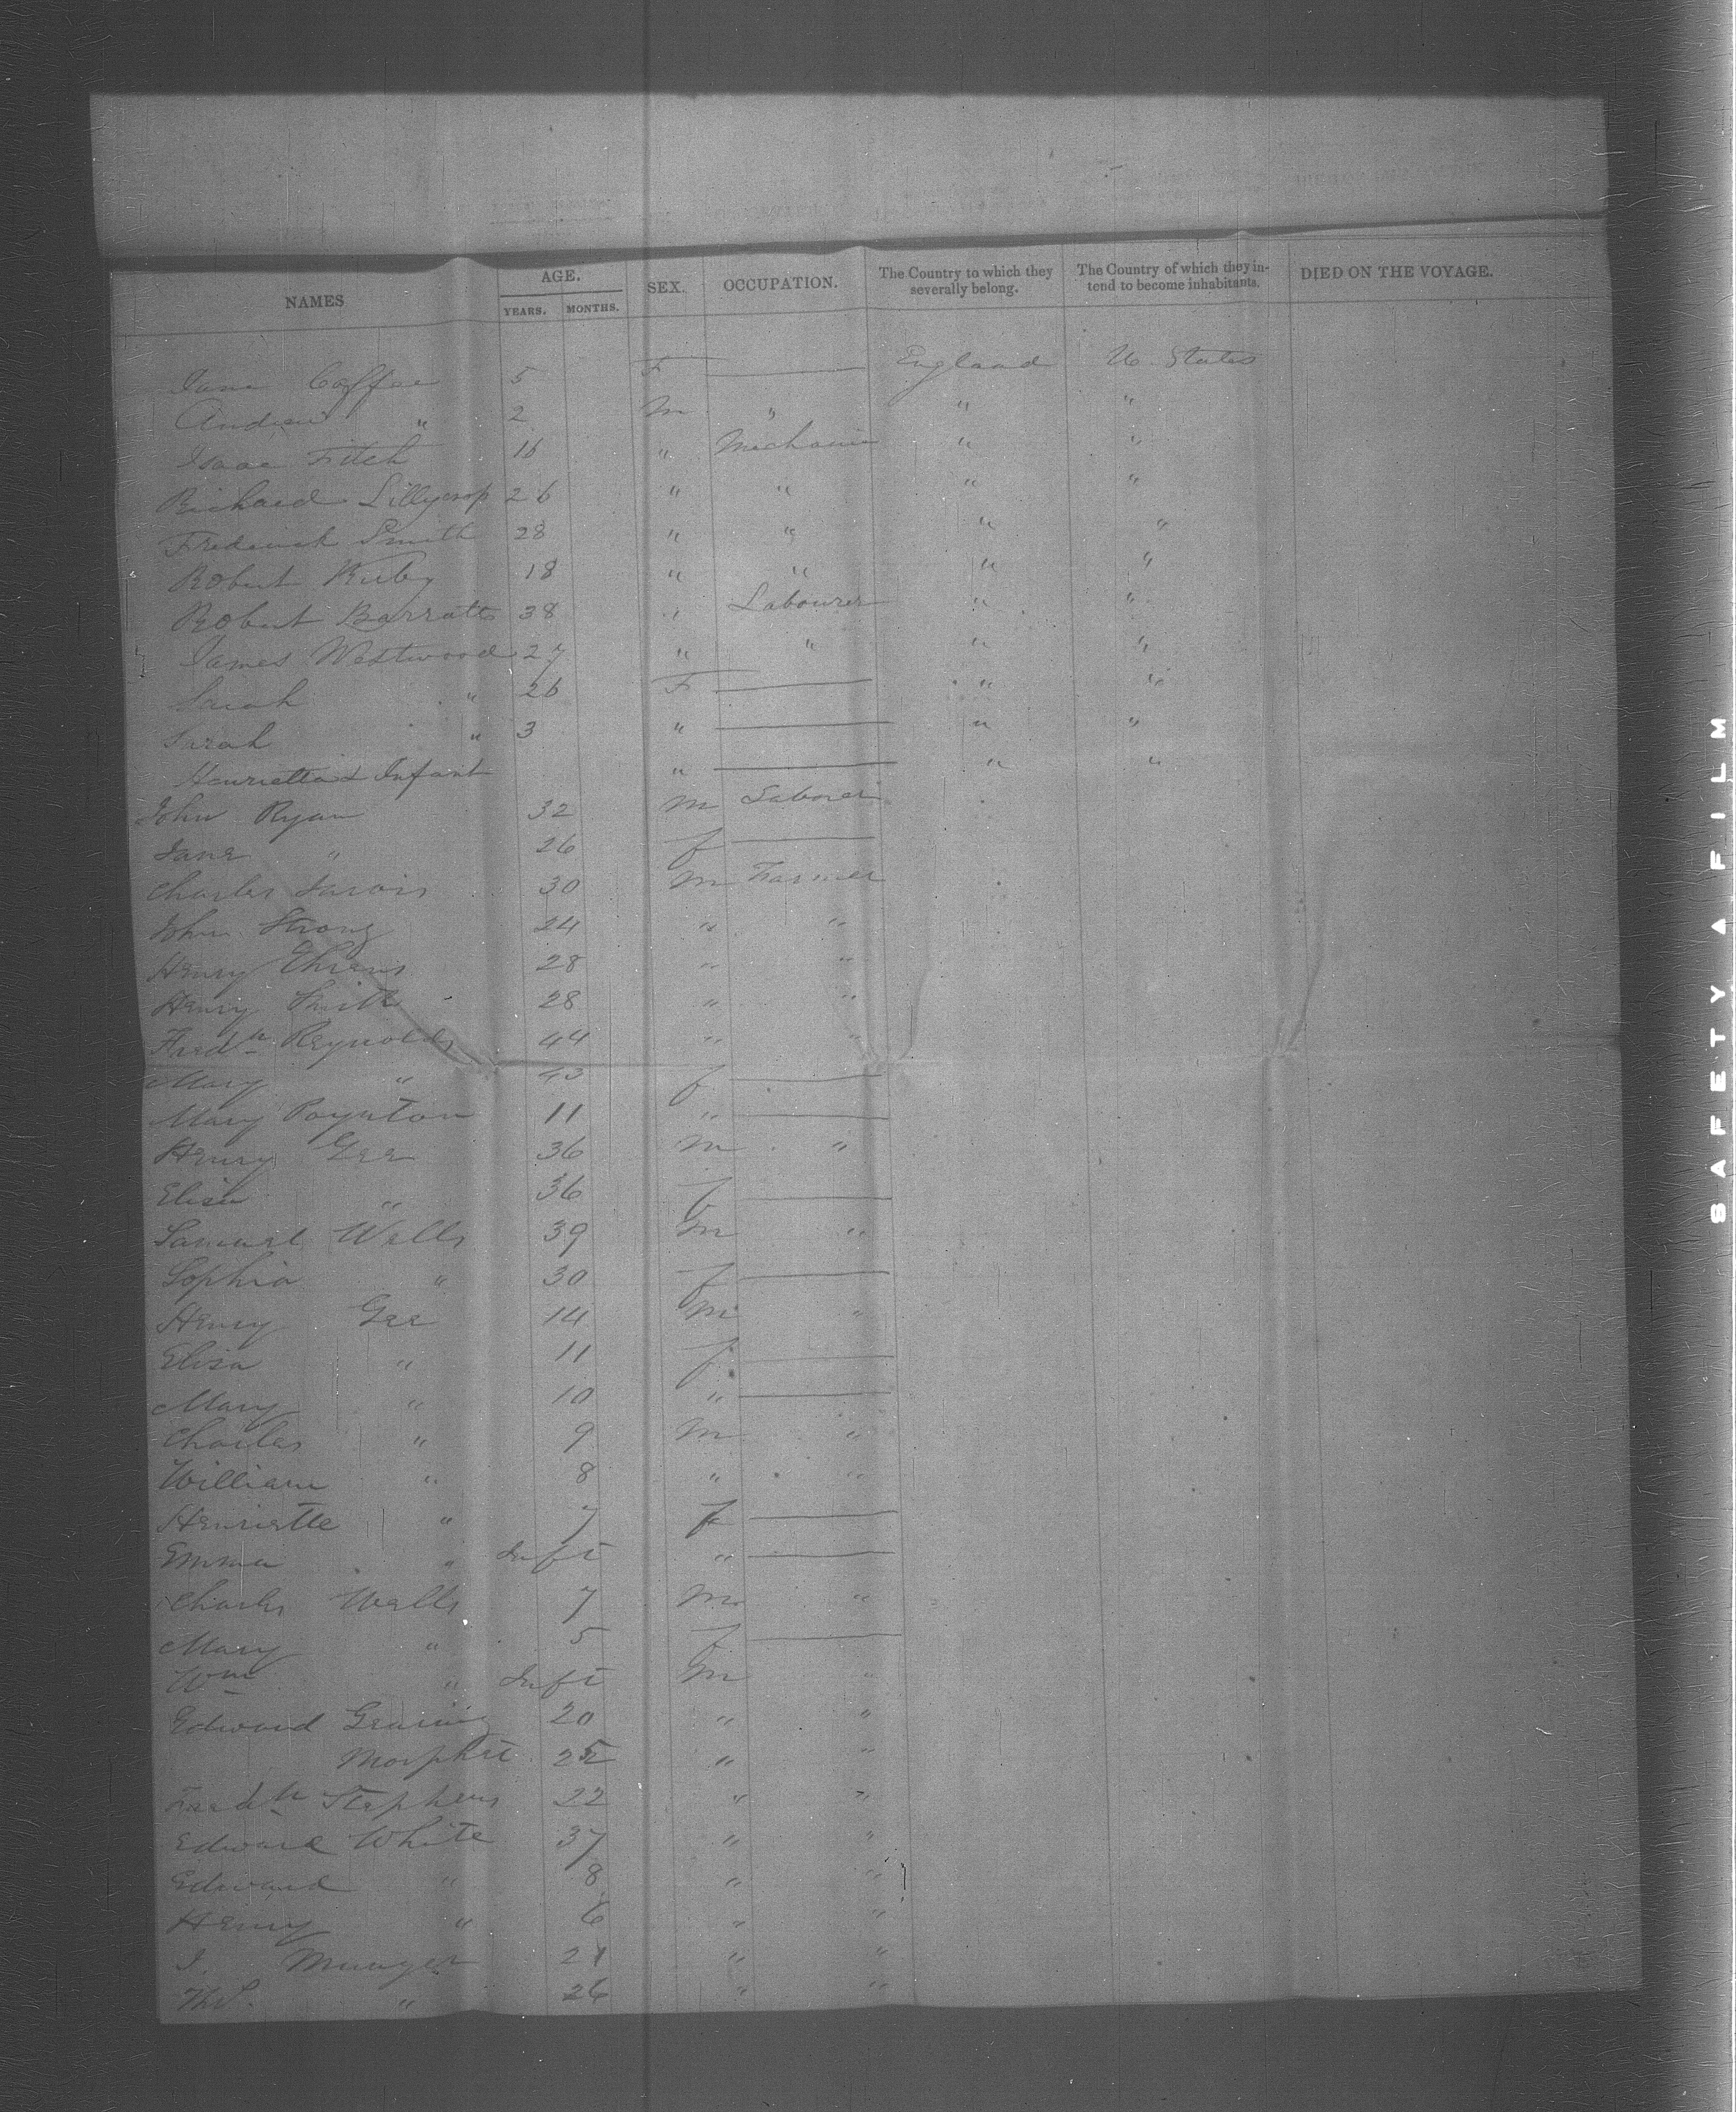 NAMES AGE. YEARS. MONTHS. SEX. OCCUPATION. The Country to which they severally belong. The Country of which they intend to become inhabitants. DIED ON THE VOYAGE.
Jane Coffee 5 F — England U. States
Andrew " 2 M " " "
Isaac Fitch 16 " Mechanic " "
Richard Lillycrop 26 " " " "
Frederick Smith 28 " " " "
Robert Kirby 18 " " " "
Robert Barratts 38 " Labourer " "
James Westwood 27 " " " "
Sarah " 26 F — " "
Sarah " 3 " — " "
Henrietta & Infant " — " "
John Ryan 32 M Laborer
Jane " 26 f —
Charles Jarvis 30 M Farmer
John Strong 24 " "
Henry 28 " "
Henry Smith 28 " "
Fredk Reynolds 44 " "
Mary " 43 f —
Mary Poynton 11 " —
Henry Gee 36 M "
Elisa " 36 f —
Samuel Wells 39 M "
Sophia " 30 f —
Henry Gee 14 M "
Elisa " 11 f —
Mary " 10 " —
Charles " 9 M "
William " 8 " "
Henriette " 7 f —
Emma " Inft " —
Charles Wells 7 M "
Mary " 5 f —
Wm " Inft M "
Edward 20 " "
25 " "
Fredk Stephens 22 " "
Edward White 37 " "
Edward " 8 " "
Henry " 6 " "
J. Munger 21 " "
" 26 " "
SAFETY A FILM